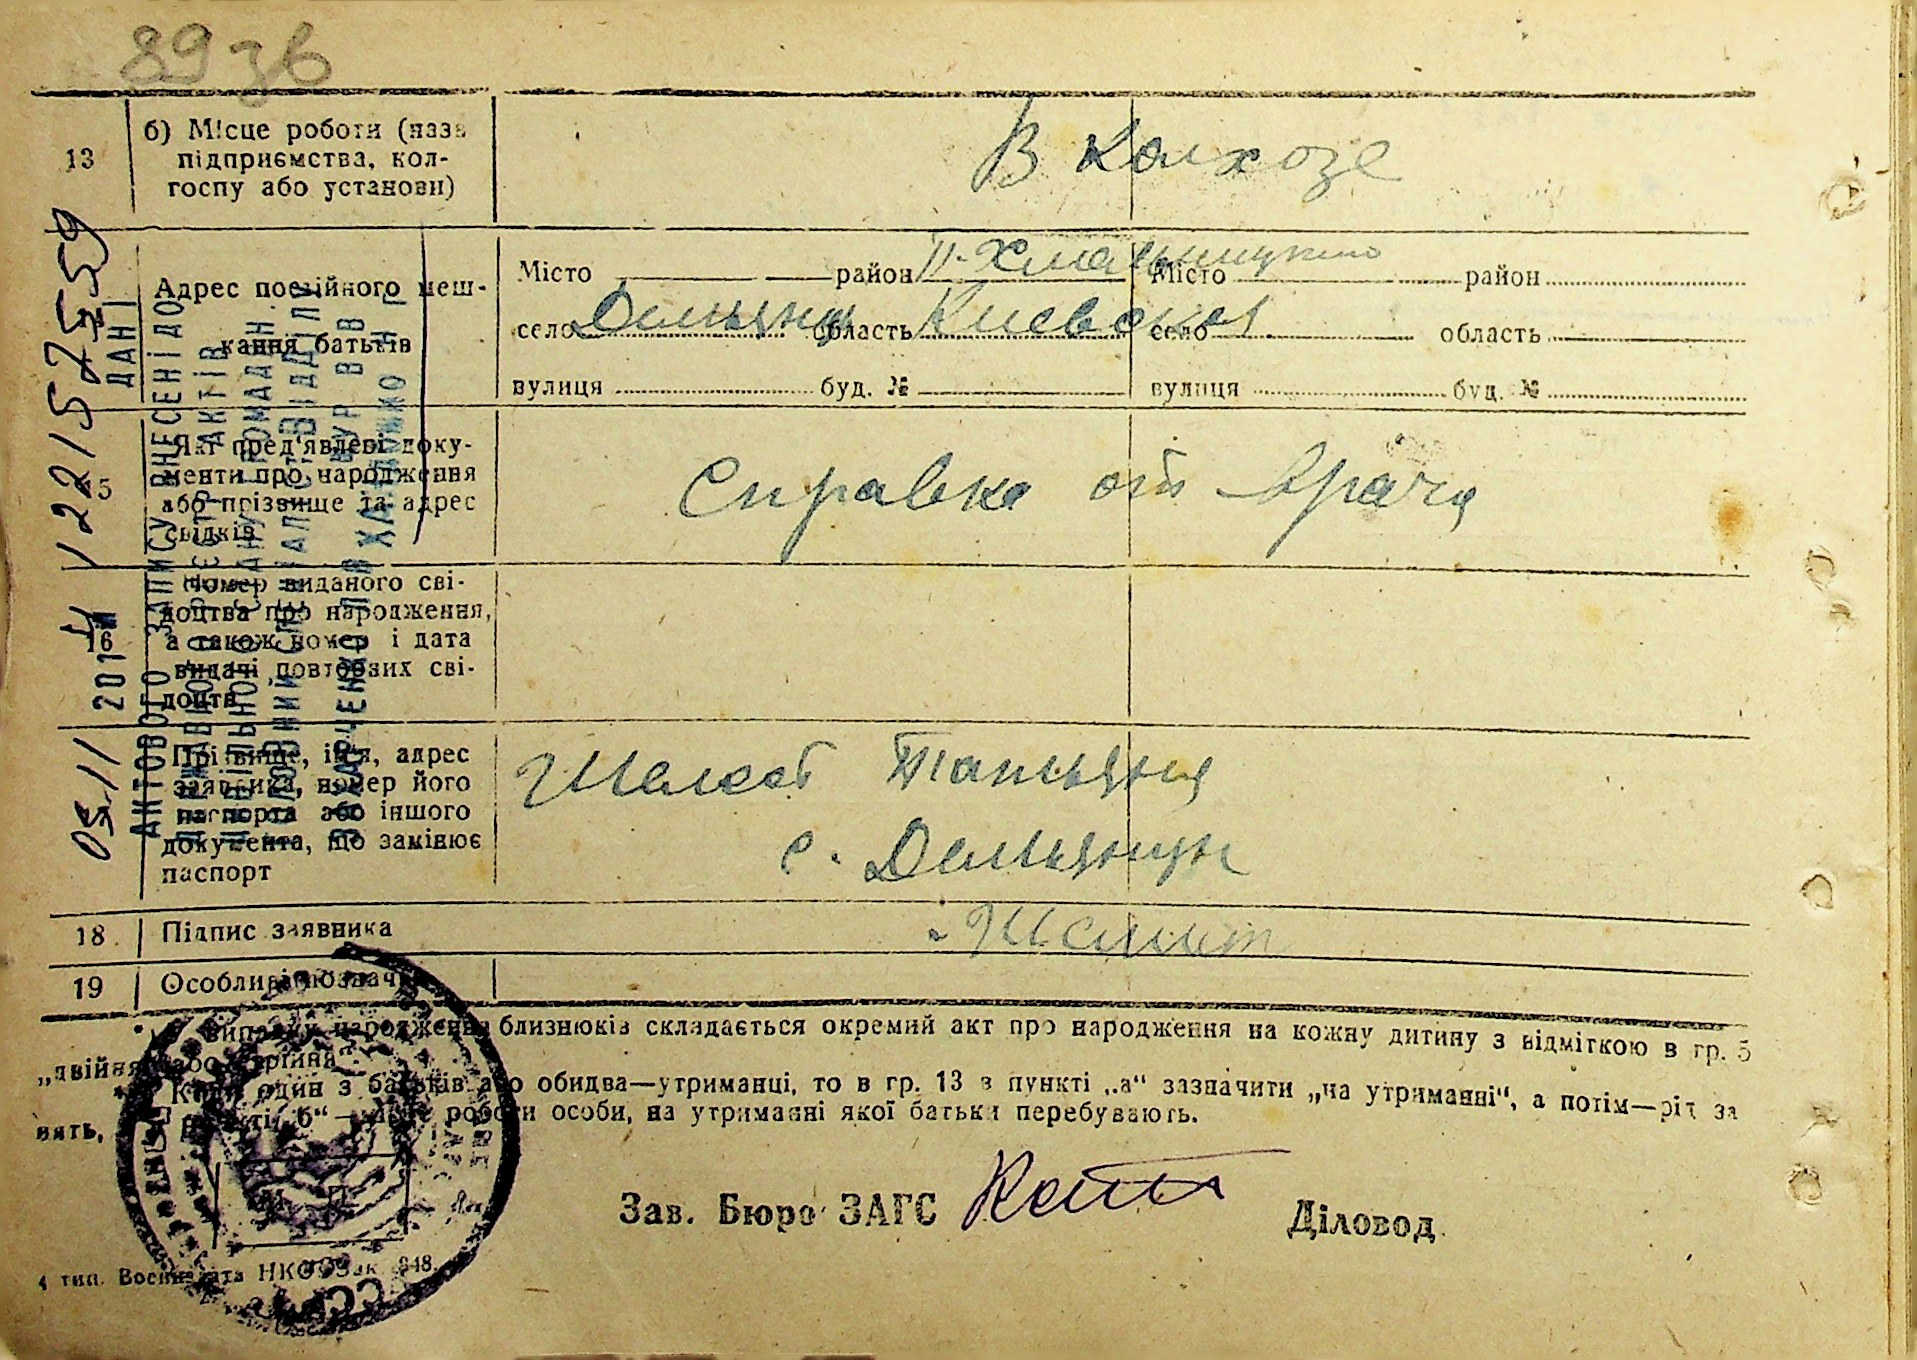 13
б) Місце роботи (назв
підприємства, кол-
госпу або установи)
В колхозе
Адрес постійного меш-
кання батьків
Місто район П-Хмельницкий Місто район
село область Киевская село область
вулиця буд. № вулиця буд. №
Які пред'явлені доку-
менти про народження
або прізвище та адрес
свідків
Справка от врача
16
Номер виданого сві-
доцтва про народження,
а також номер і дата
видачі повторних сві-
доцтв
Прізвище, ім'я, адрес
заявника, номер його
паспорта або іншого
документа, що замінює
паспорт
Шелест Татьяна
с.
18 Підпис заявника
Шелест
19 Особливі позначки
випадку народження близнюків складається окремий акт про народження на кожну дитину з відміткою в гр. 5
„двійня“ або „трійня“.
Коли один з батьків або обидва—утриманці, то в гр. 13 в пункті „а“ зазначити „на утриманні“, а потім—рід за
нять, пункті „б“— місце роботи особи, на утриманні якої батьки перебувають.
Зав. Бюро ЗАГС Діловод
4 тип. Воениздата НКО Зак. 648.
05.11 2014 122157559
ДАНІ
АКТОВОГО ЗАПИСУ ВНЕСЕНІ ДО
ДЕРЖАВНОГО РЕЄСТРУ АКТІВ
ЦИВІЛЬНОГО СТАНУ ГРОМАДЯН
ГОЛОВНИЙ СПЕЦІАЛІСТ ВІДДІЛУ
СССР